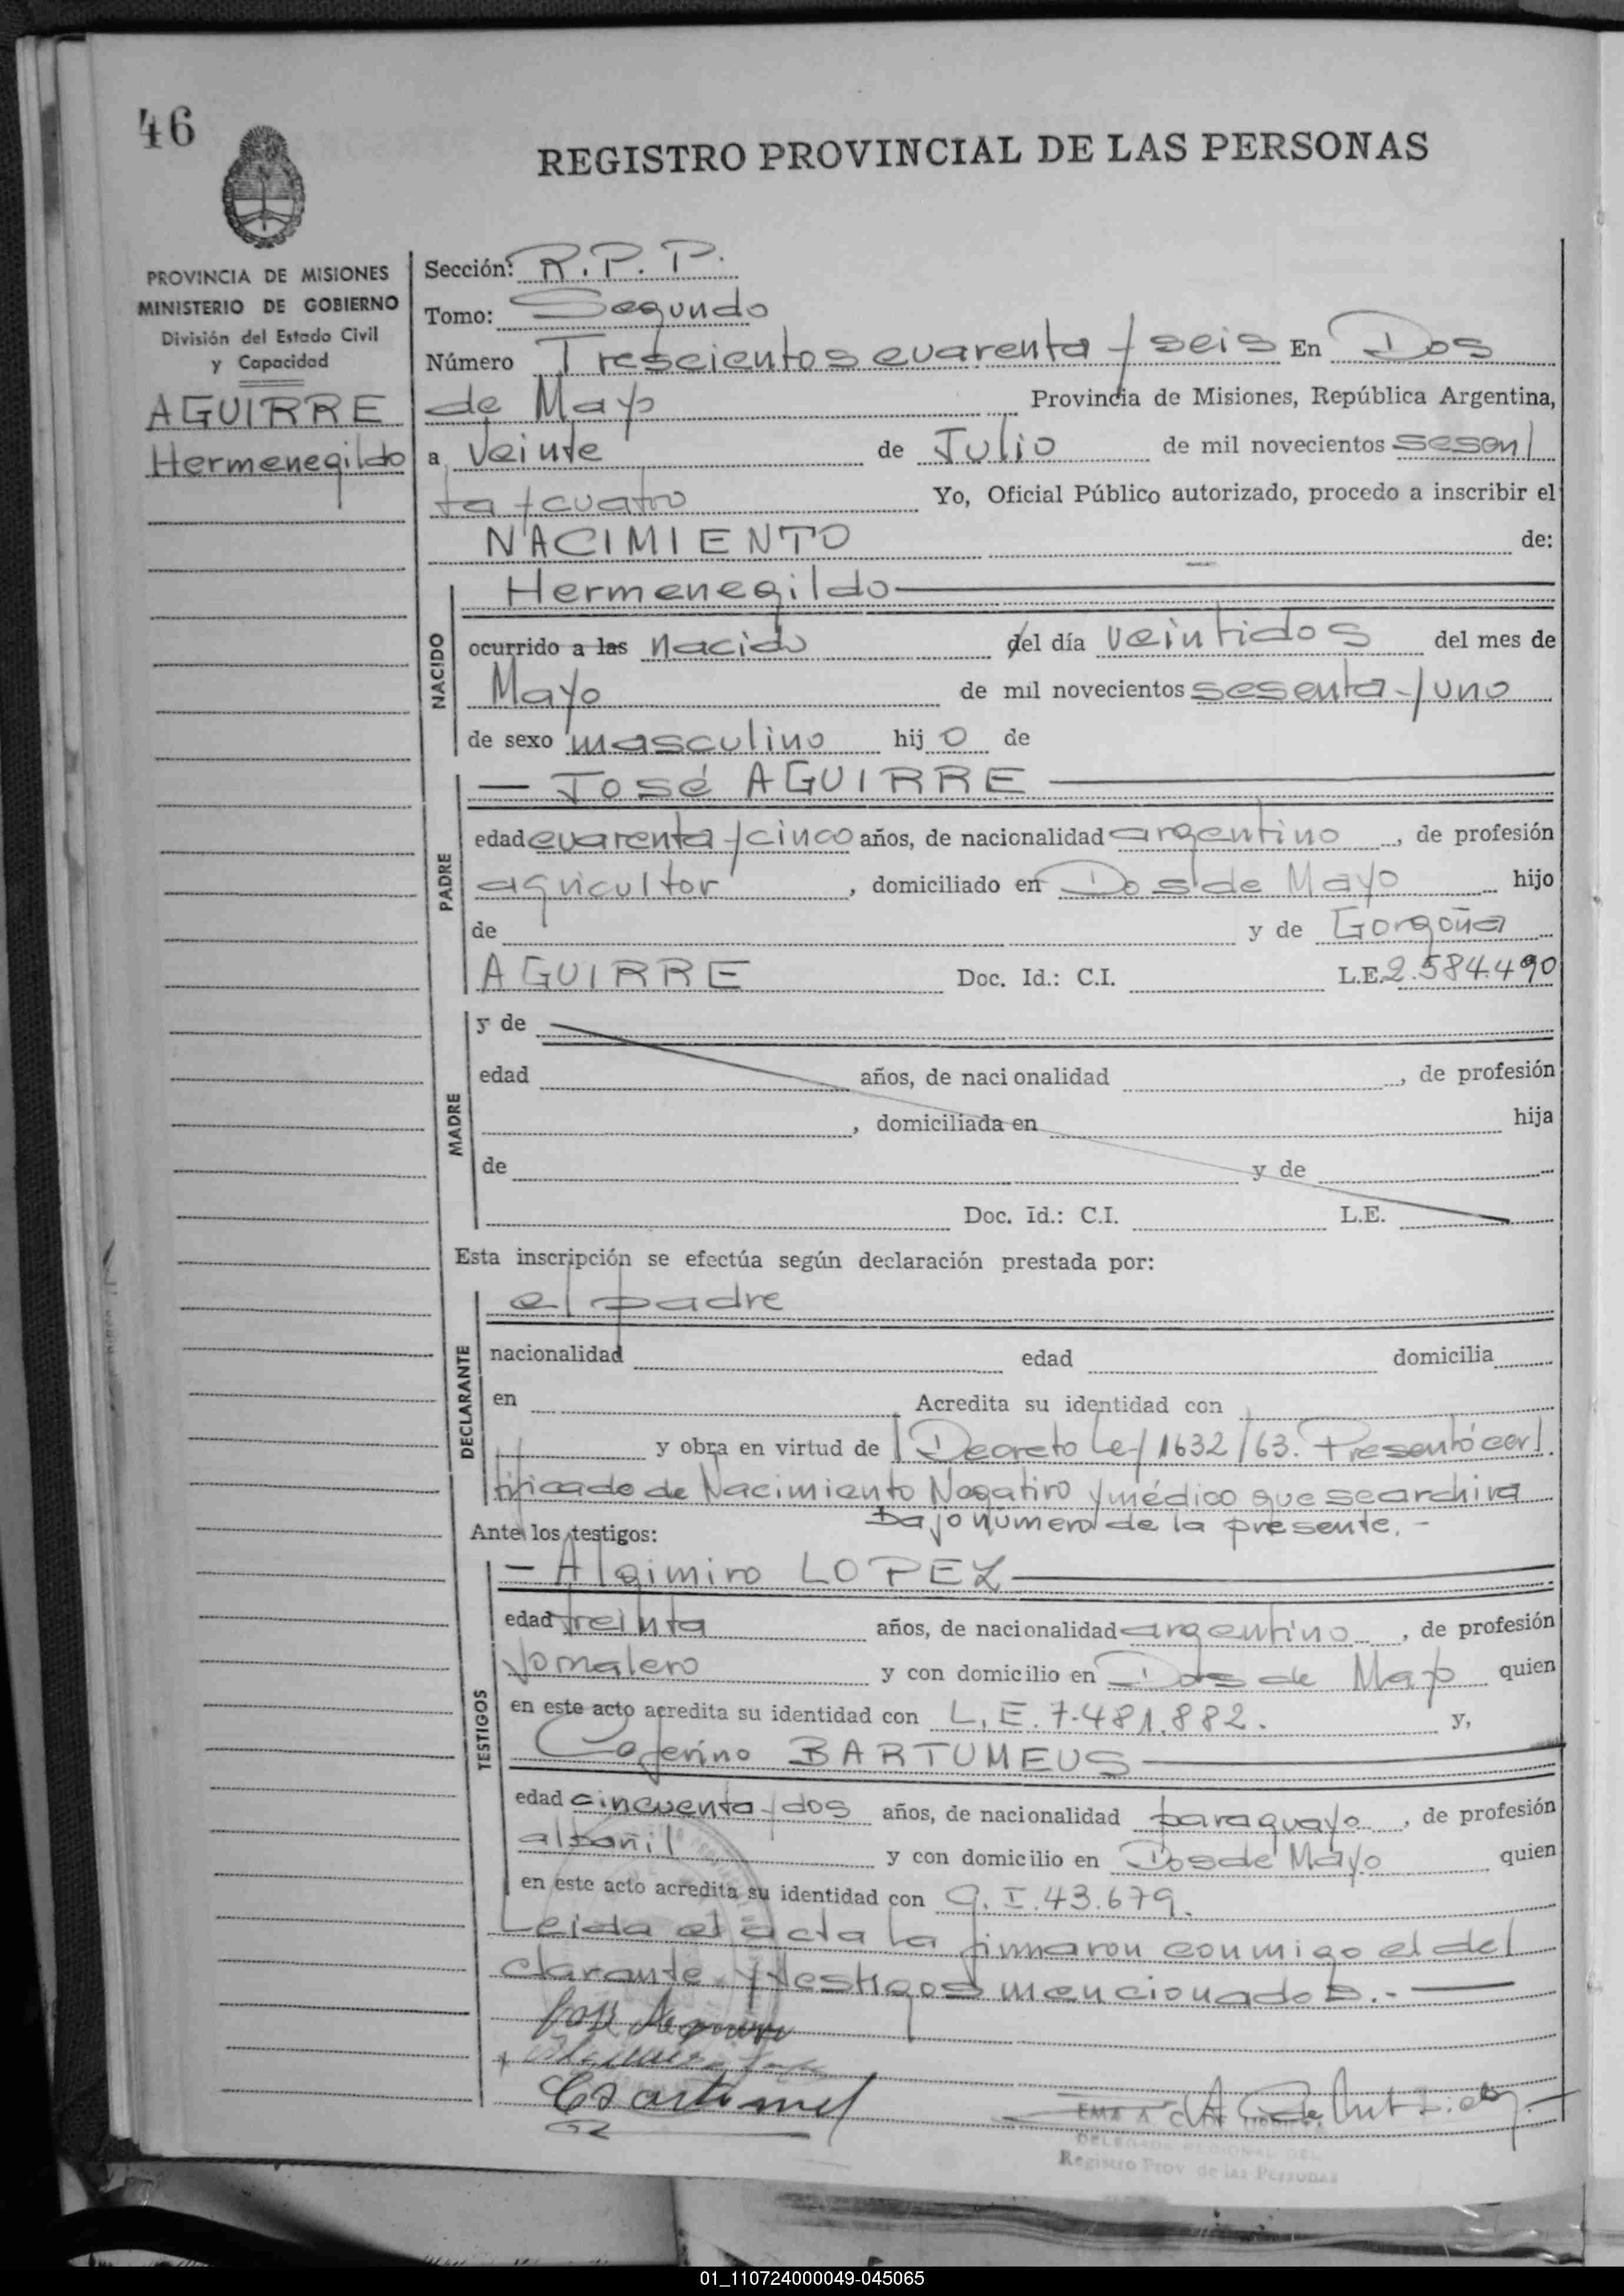 46
REGISTRO PROVINCIAL DE LAS PERSONAS
PROVINCIA DE MISIONES
MINISTERIO DE GOBIERNO
División del Estado Civil
y Capacidad
AGUIRRE
Hermenegildo
Sección: R.P.P.
Tomo: Segundo
Número Trescientos cuarenta y seis En Dos
de Mayo Provincia de Misiones, República Argentina,
a veinte de Julio de mil novecientos sesen
ta y cuatro Yo, Oficial Público autorizado, procedo a inscribir el
NACIMIENTO de:
NACIDO
Hermenegildo
ocurrido a las nacido del día veintidos del mes de
Mayo de mil novecientos sesenta y uno
de sexo masculino hijo de
PADRE
José AGUIRRE
edad cuarenta y cinco años, de nacionalidad argentino, de profesión
agricultor, domiciliado en Dos de Mayo hijo
de y de Gorgoña
AGUIRRE Doc. Id.: C.I. L.E. 2.584.490
MADRE
y de
edad años, de nacionalidad , de profesión
, domiciliada en hija
de y de
Doc. Id.: C.I. L.E.
Esta inscripción se efectúa según declaración prestada por:
DECLARANTE
el padre
nacionalidad edad domicilia
en Acredita su identidad con
y obra en virtud de Decreto Ley 1632/63. Presentó cer
tificado de Nacimiento Negativo y médico que se archiva
bajo número de la presente.-
Ante los testigos:
TESTIGOS
- Algimiro LOPEZ
edad treinta años, de nacionalidad argentino, de profesión
jornalero y con domicilio en Dos de Mayo quien
en este acto acredita su identidad con L.E. 7.481.882. y,
Ceferino BARTUMEUS
edad cincuenta y dos años, de nacionalidad paraguayo, de profesión
albañil y con domicilio en Dos de Mayo quien
en este acto acredita su identidad con C.I. 43.679.
Leida el acta la firmaron conmigo el de
clarante y testigos mencionados.-
José Aguirre
CBartumeus
DELEGADA REGIONAL DEL
Registro Prov de las Personas
01_110724000049-045065